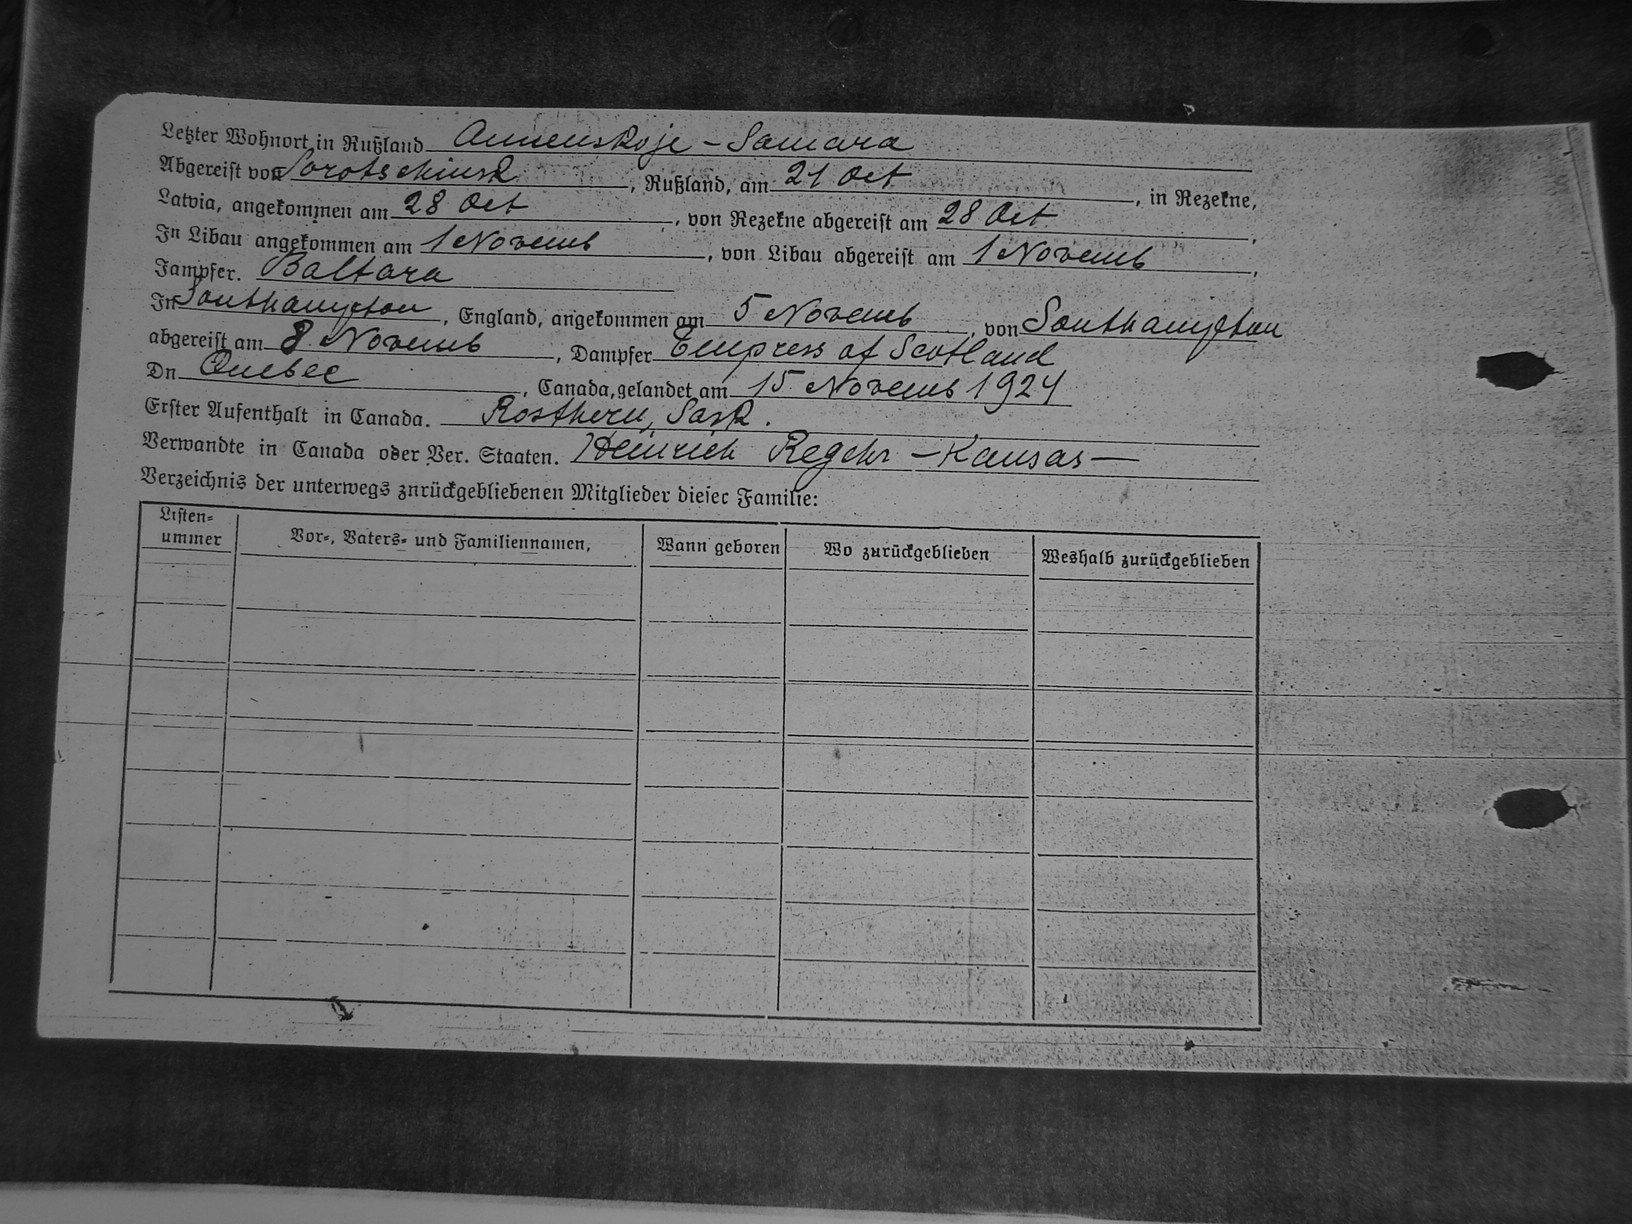 Letzter Wohnort in Rußland Annenskoje - Samara
Abgereist von Sorotschinsk, Rußland, am 21 Oct, in Rezekne,
Latvia, angekommen am 28 Oct, von Rezekne abgereist am 28 Oct.,
In Libau angekommen am 1 Novemb, von Libau abgereist am 1 Novemb,
Jampfer. Baltara
In Southampton, England, angekommen am 5 Novemb, von Southampton
abgereist am 8 Novemb, Dampfer Empress of Scotland
Dn Quebec, Canada, gelandet am 15 Novemb 1924
Erster Aufenthalt in Canada. Rosthern, Sask.
Verwandte in Canada oder Ver. Staaten. Heinrich Regehr - Kansas -
Verzeichnis der unterwegs znrückgebliebenen Mitglieder diesec Familie:
Listen=
ummer
Vor=, Vaters= und Familiennamen,
Wann geboren
Wo zurückgeblieben
Weshalb zurückgeblieben